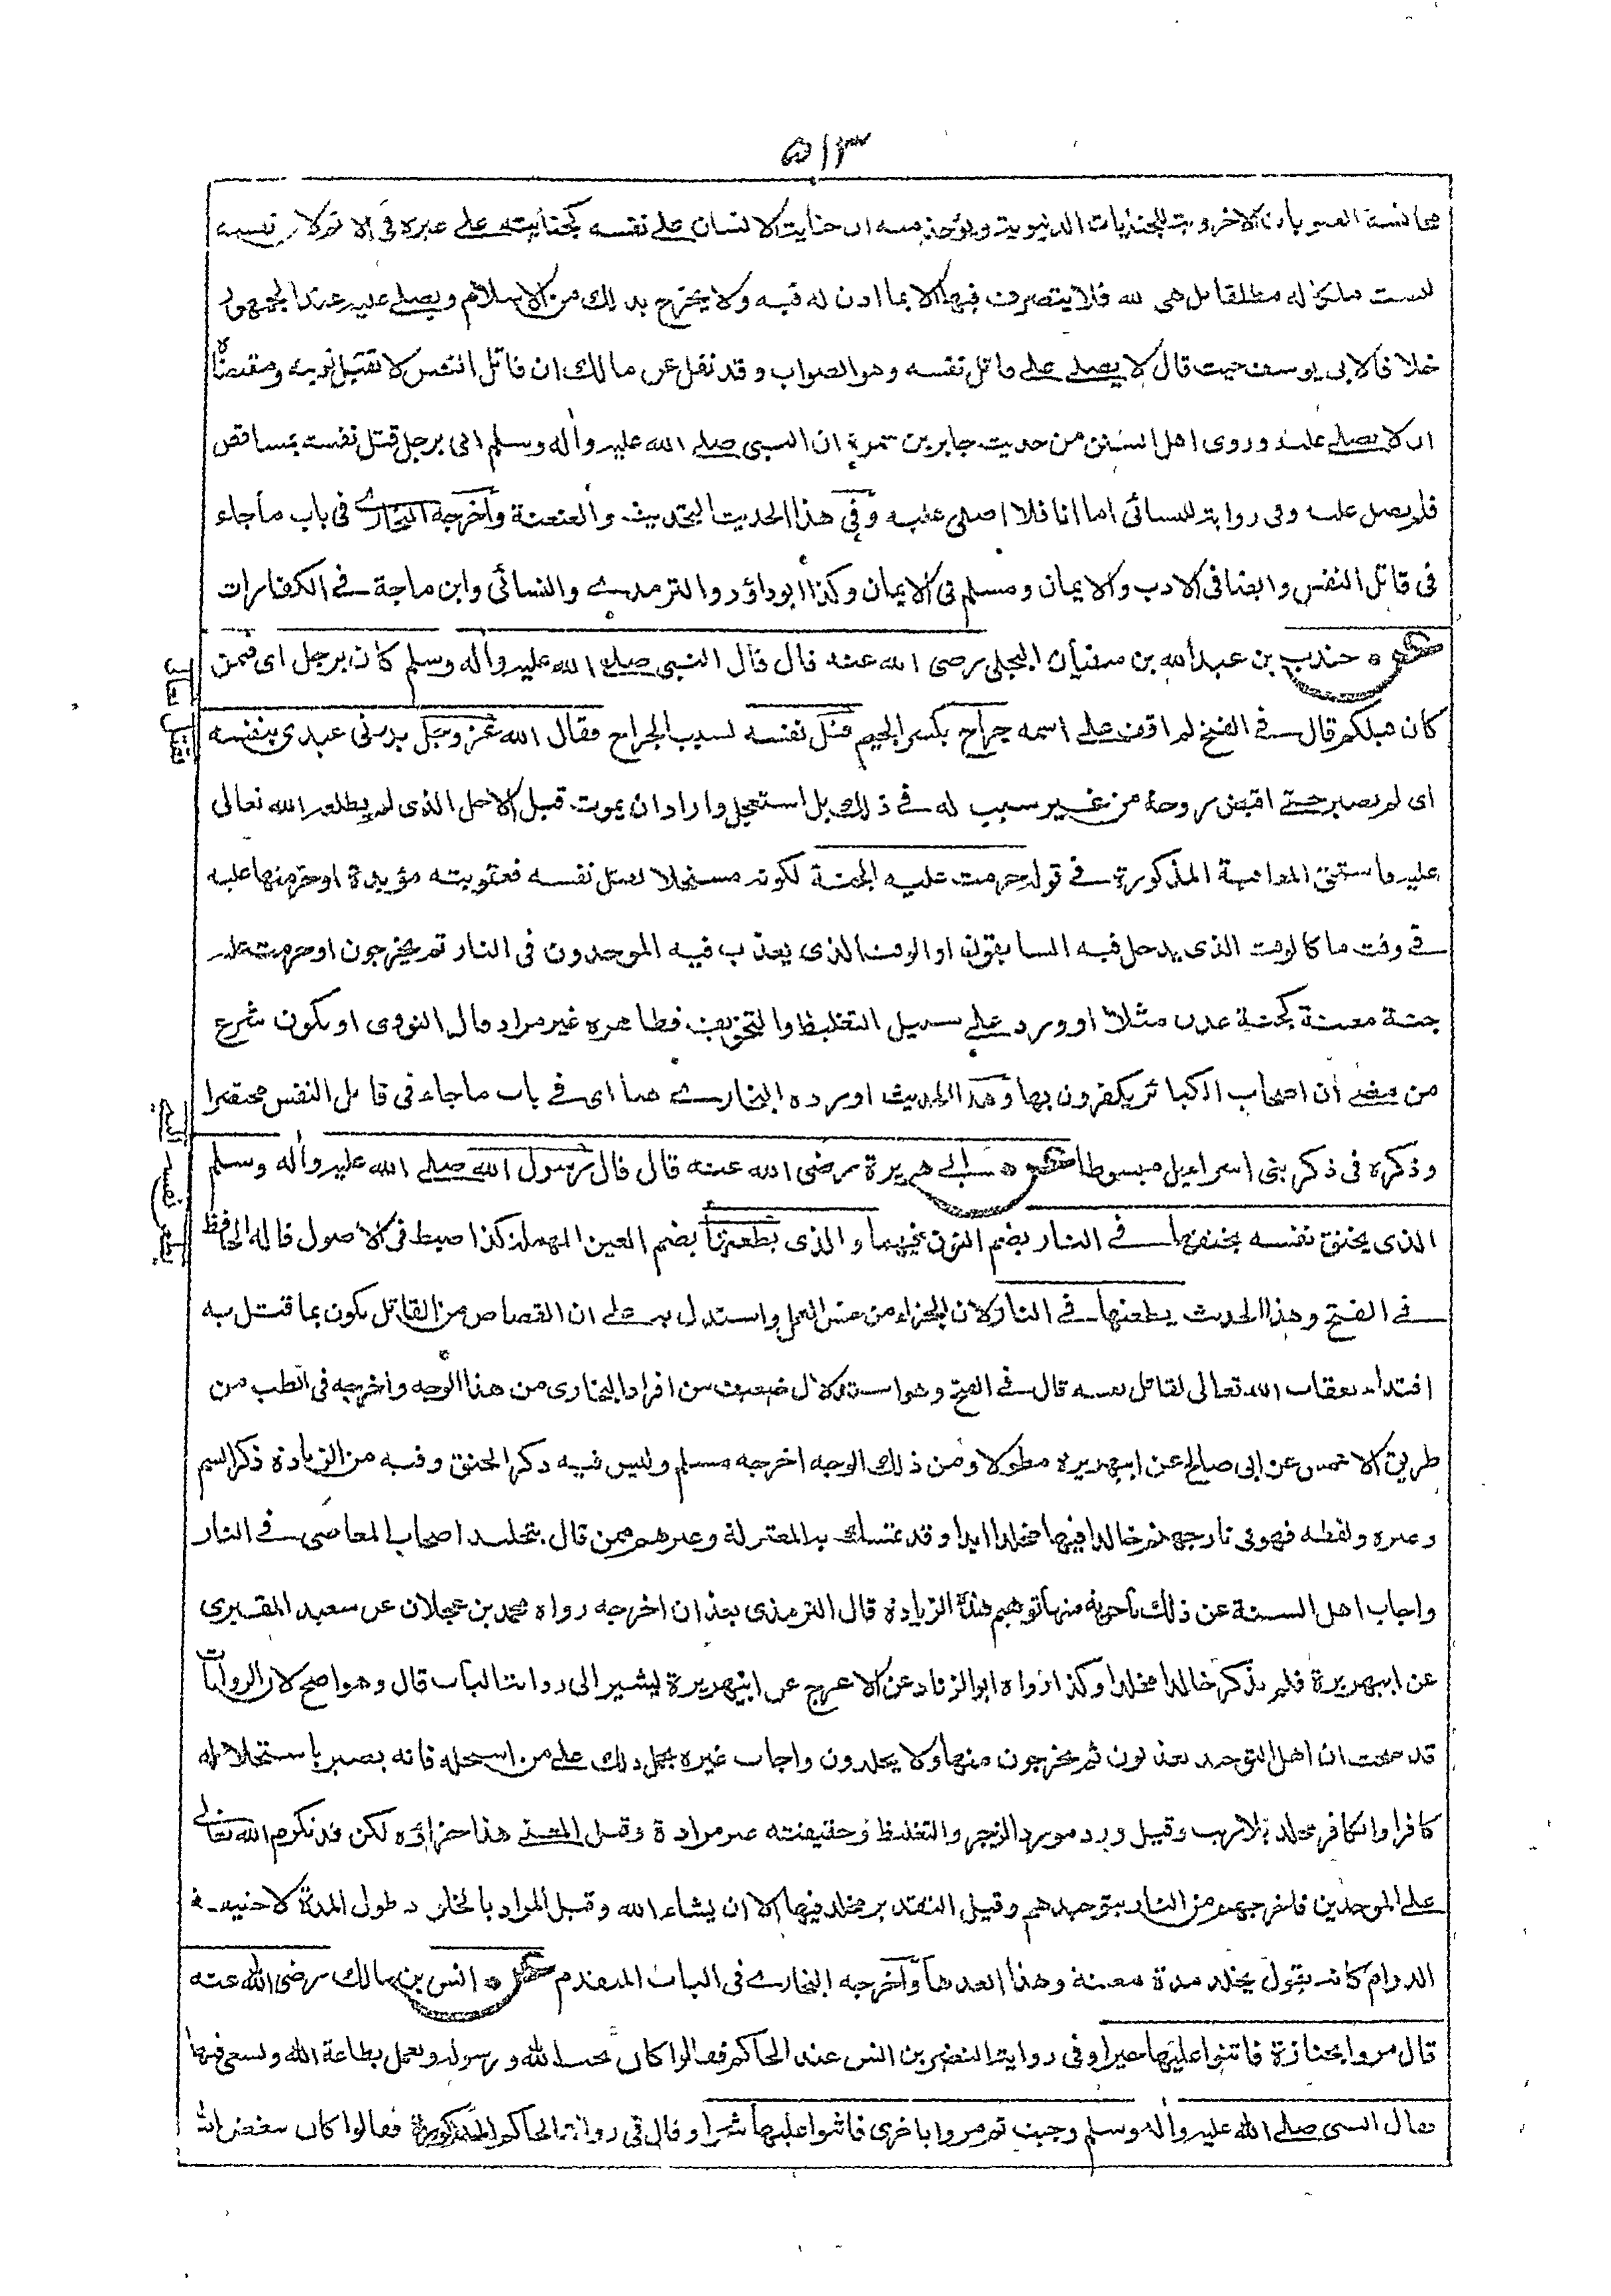 ٥١٣
مجانسة العقوبات الاخروية للجنايات الدنيوية ويؤخذ منه ان جناية الانسان على نفسه كجنايته على غيره في الاثم لان نفسه
ليست ملكا له مطلقا بل هى لله فلا يتصرف فيها الا بما اذن له فيه ولا يخرج بذلك من الاسلام ويصلى عليه عند الجمهور
خلافا لابى يوسف حيث قال لا يصلى على قاتل نفسه وهو الصواب وقد نقل عن مالك ان قاتل النفس لا تقبل توبته ومقتضاه
ان لا يصلى عليه وروى اهل السنن من حديث جابر بن سمرة ان النبى صلى الله عليه واله وسلم اتى برجل قتل نفسه بمشاقص
فلم يصل عليه وفى رواية للنسائى اما انا فلا اصلى عليه وفى هذا الحديث التحديث والعنعنة واخرجه البخارى فى باب ماجاء
فى قاتل النفس وايضا فى الادب والايمان ومسلم فى الايمان وكذا ابوداؤد والترمذى والنسائى وابن ماجة فى الكفارات
جندب بن عبدالله بن سفيان البجلى رضى الله عنه قال قال النبى صلى الله عليه واله وسلم كان برجل اى فمن
كان قبلكم قال فى الفتح لم اقف على اسمه جراح بكسر الجيم قتل نفسه لسبب الجراح فقال الله عز وجل بدرنى عبدى بنفسه
اى لم يصبر حتى اقبض روحه من غير سبب له فى ذلك بل استعجل واراد ان يموت قبل الاجل الذى لم يطلعه الله تعالى
عليه واستحق المعاقبة المذكورة فى قوله حرمت عليه الجنة لكونه مستحلا لقتل نفسه فعقوبته مؤبدة او حرمتها عليه
فى وقت ما كالوقت الذى يدخل فيه السابقون او الوقت الذى يعذب فيه الموحدون فى النار ثم يخرجون او حرمت عليه
جنة معينة كجنة عدن مثلا او ورد على سبيل التغليظ والتخويف فظاهره غير مراد قال النووى او يكون شرع
من مضى ان اصحاب الكبائر يكفرون بها وهذا الحديث اورده البخارى هنا اى فى باب ماجاء فى قاتل النفس مختصرا
وذكره فى ذكر بنى اسرائيل مبسوطا عن ابى هريرة رضى الله عنه قال قال رسول الله صلى الله عليه واله وسلم
الذى يخنق نفسه يخنقها فى النار بضم النون فيهما والذى يطعنها بضم العين المهملة كذا ضبط فى الاصول قاله الحافظ
فى الفتح وهذا الحديث يطعنها فى النار لان الجزاء من جنس العمل واستدل به على ان القصاص من القاتل يكون بما قتل به
اقتداء بعقاب الله تعالى لقاتل نفسه قال فى الفتح وهو استدلال ضعيف من افراد البخارى من هذا الوجه واخرجه فى الطب من
طريق الاعمش عن ابى صالح عن ابى هريرة مطولا ومن ذلك الوجه اخرجه مسلم وليس فيه ذكر الخنق وفيه من الزيادة ذكر السم
وغيره ولفظه فهو فى نار جهنم خالدا فيها مخلدا ابدا وقد تمسك به المعتزلة وغيرهم ممن قال بتخليد اصحاب المعاصى فى النار
واجاب اهل السنة عن ذلك باجوبة منها توهيم هذه الزيادة قال الترمذى بعد ان اخرجه رواه محمد بن عجلان عن سعيد المقبرى
عن ابى هريرة فلم يذكر خالدا مخلدا وكذا رواه ابو الزناد عن الاعرج عن ابى هريرة يشير الى رواية الباب قال وهو اصح لان الروايات
قد صحت ان اهل التوحيد يعذبون ثم يخرجون منها ولا يخلدون واجاب غيره بحمل ذلك على من استحله فانه يصير باستحلاله
كافرا والكافر مخلد بلا ريب وقيل ورد مورد الزجر والتغليظ وحقيقته غير مرادة وقيل المعنى هذا جزاؤه لكن قد تكرم الله تعالى
على الموحدين فاخرجهم من النار بتوحيدهم وقيل التقدير مخلد فيها الا ان يشاء الله وقيل المراد بالخلود طول المدة لا حقيقة
الدوام كانه يقول يخلد مدة معينة وهذا ابعدها واخرجه البخارى فى الباب المتقدم عن انس بن مالك رضى الله عنه
قال مروا بجنازة فاثنوا عليها خيرا وفى رواية النضر بن انس عند الحاكم فقالوا كان يحب الله ورسوله ويعمل بطاعة الله ويسعى فيها
فقال النبى صلى الله عليه واله وسلم وجبت ثم مروا باخرى فاثنوا عليها شرا وقال فى رواية الحاكم المذكورة فقالوا كان يبغض الله